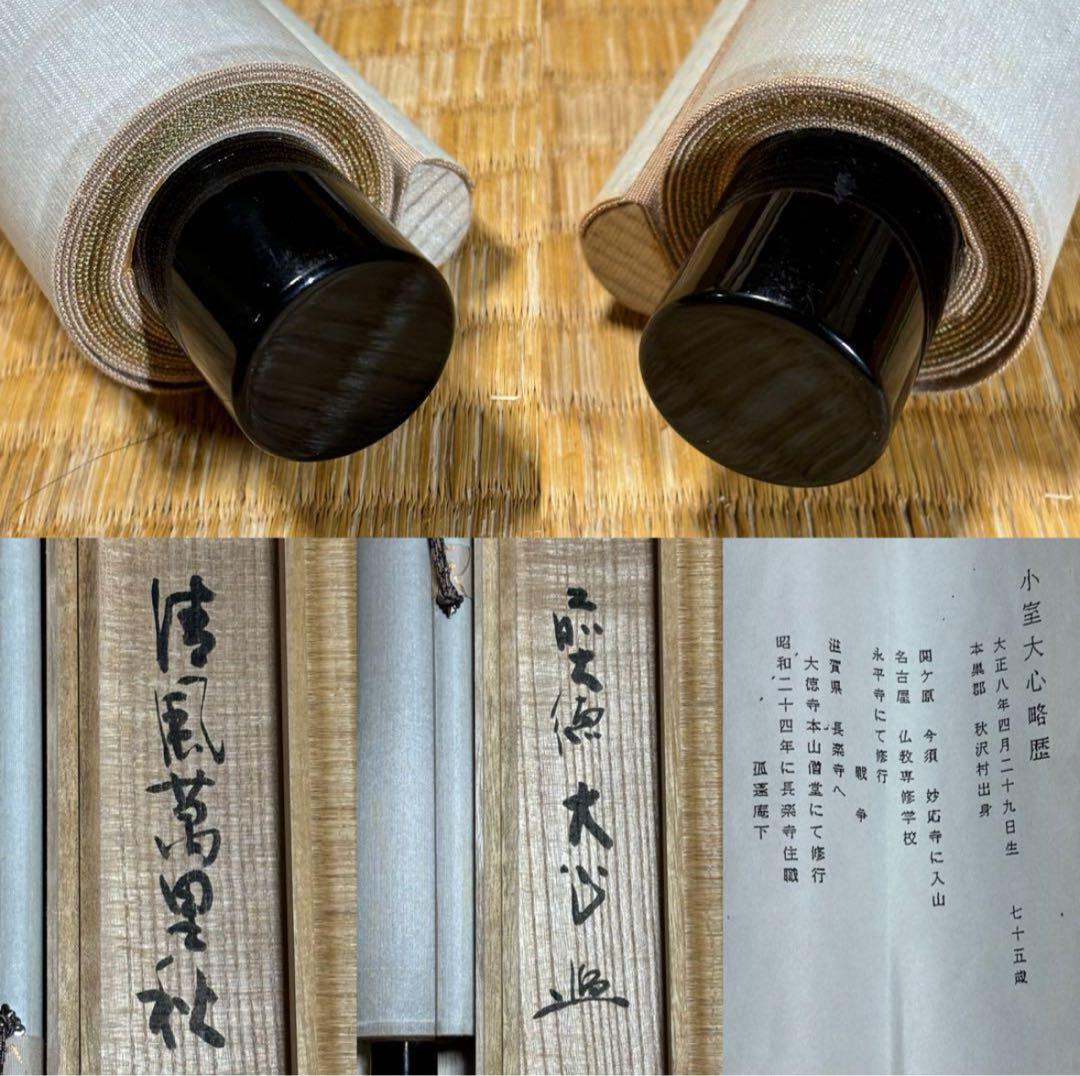 清風萬里秋
大心
小室大心略歴
大正八年四月二十九日生 七十五歳
本巣郡 秋沢村出身
関ケ原 今須 妙応寺に入山
名古屋 仏教専修学校
永平寺にて修行
戦争
滋賀県 長楽寺へ
大徳寺本山僧堂にて修行
昭和二十四年に長楽寺住職
孤篷庵下